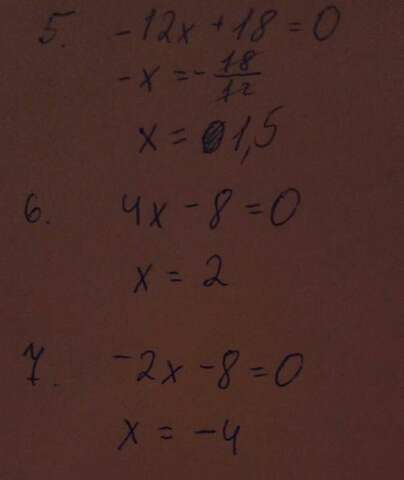 5. -12x + 18 = 0
-x = - 18/12
x = 1,5
6. 4x - 8 = 0
x = 2
7. -2x - 8 = 0
x = -4